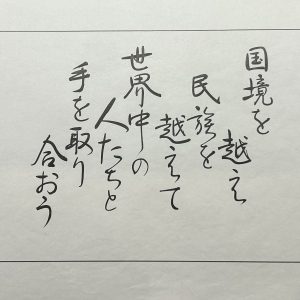 国境を越え
民族を越えて
世界中の
人たちと
手を取り
合おう